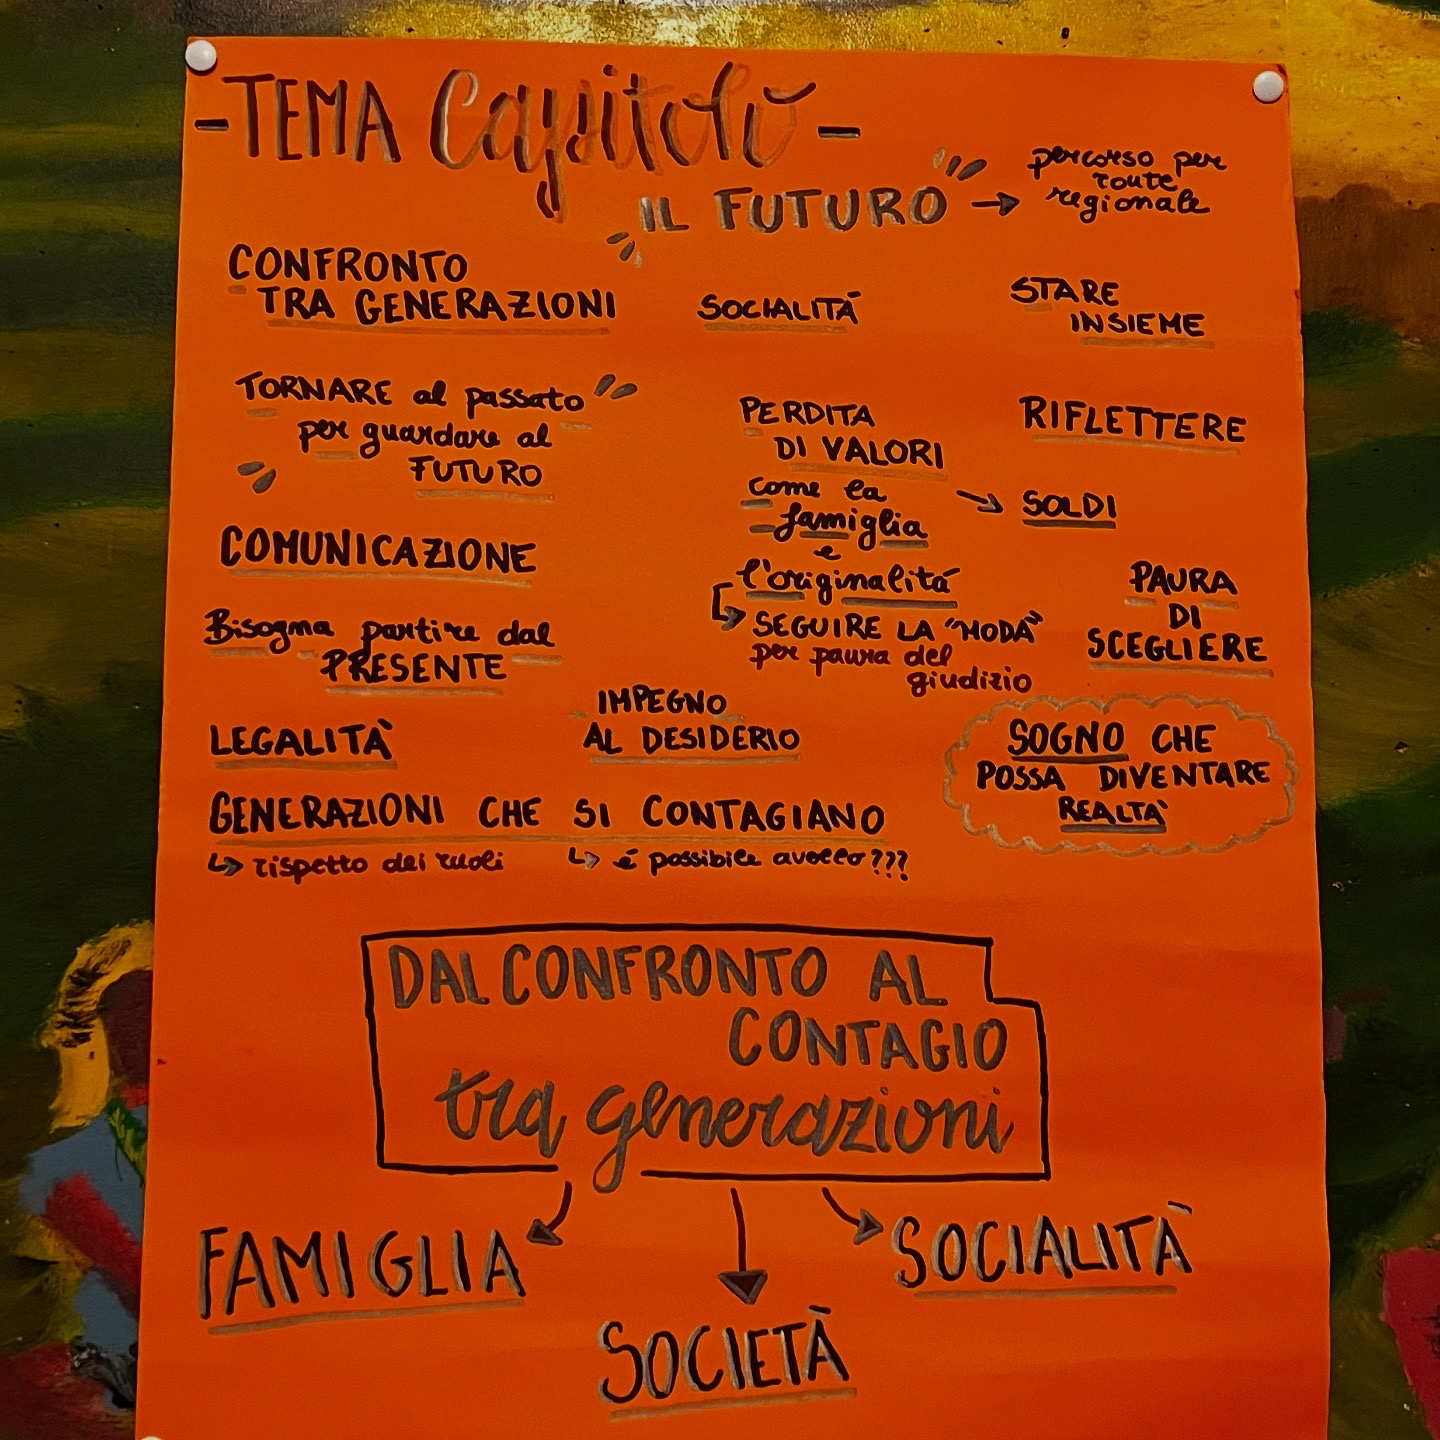 -TEMA Capitolo-
IL FUTURO → percorso per
route
regionale
CONFRONTO
TRA GENERAZIONI
SOCIALITÁ
STARE
INSIEME
TORNARE al passato
per guardare al
FUTURO
PERDITA
DI VALORI
come la
famiglia
e
l'originalitá
→ SEGUIRE LA "MODA"
per paura del
giudizio
RIFLETTERE
→ SOLDI
COMUNICAZIONE
PAURA
DI
SCEGLIERE
Bisogna partire dal
PRESENTE
IMPEGNO
AL DESIDERIO
LEGALITÀ
SOGNO CHE
POSSA DIVENTARE
REALTÀ
GENERAZIONI CHE SI CONTAGIANO
↳ rispetto dei ruoli
↳ é possibile averlo???
DAL CONFRONTO AL
CONTAGIO
tra generazioni
FAMIGLIA
SOCIALITÀ
SOCIETÀ